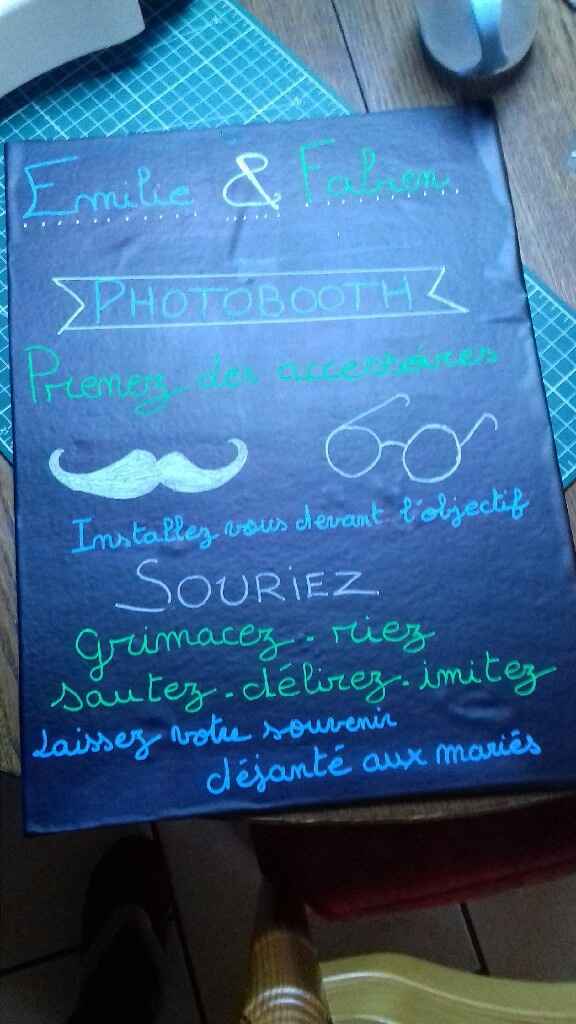 Emilie & Fabien
PHOTOBOOTH
Prenez des accessoires
Installez vous devant l'objectif
SOURIEZ
grimacez. riez
sautez. délirez. imitez
Laissez votre souvenir
déjanté aux mariés